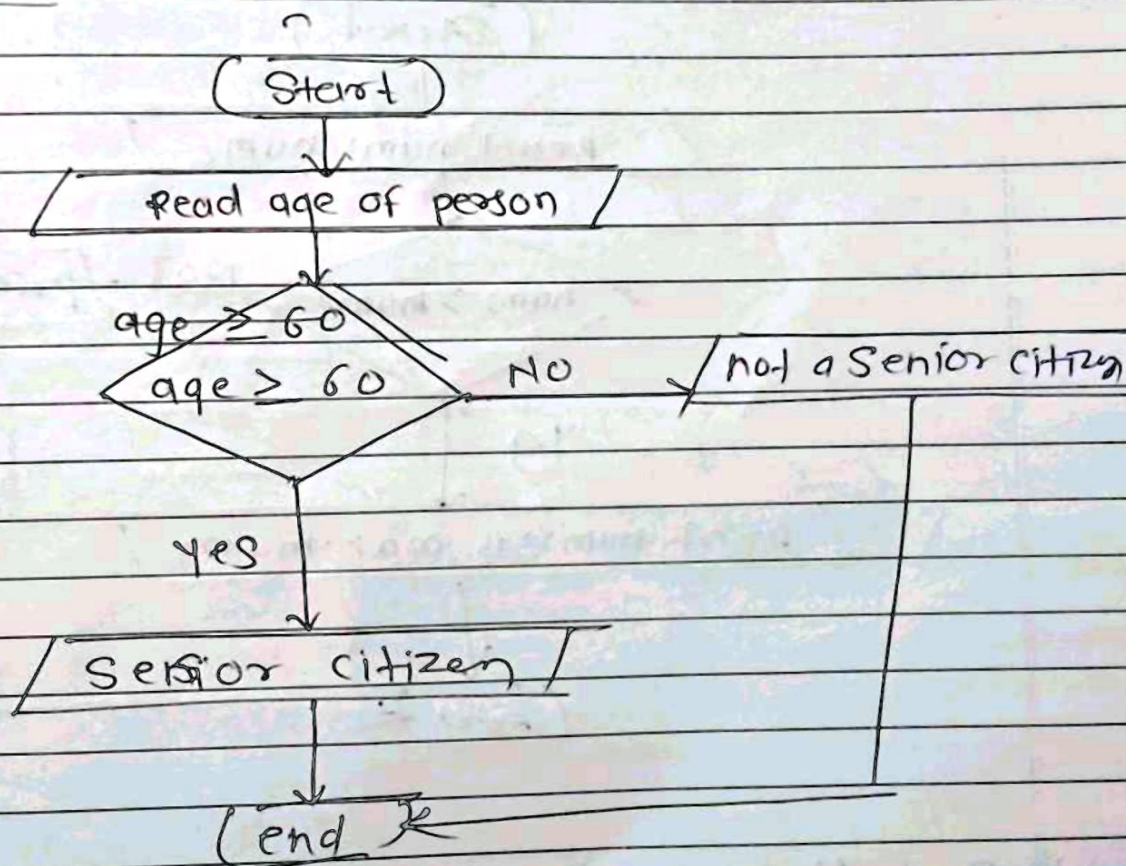 Start
Read age of person
age ≥ 60
age ≥ 60
NO
not a Senior citizen
yes
Senior citizen
end